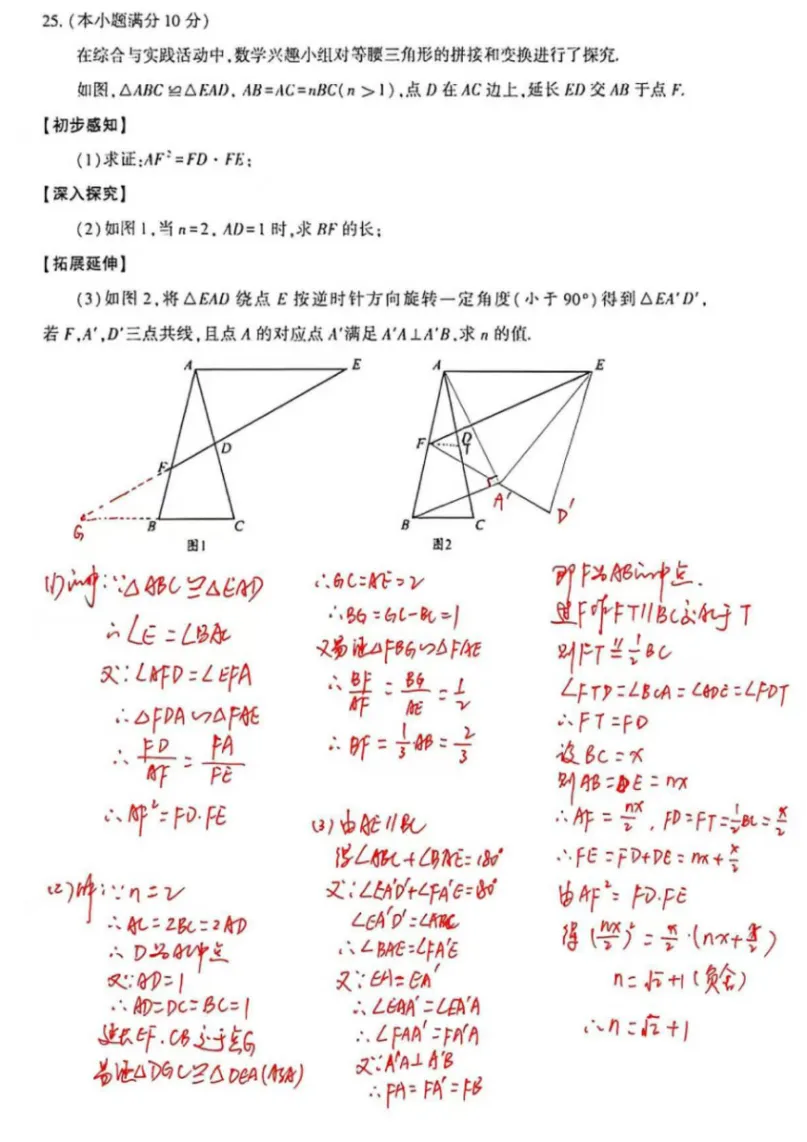 25. (本小题满分10分)
在综合与实践活动中,数学兴趣小组对等腰三角形的拼接和变换进行了探究.
如图,△ABC≌△EAD, AB=AC=nBC(n>1),点D在AC边上,延长ED交AB于点F.
【初步感知】
(1)求证:AF²=FD·FE;
【深入探究】
(2)如图1,当n=2, AD=1时,求BF的长;
【拓展延伸】
(3)如图2,将△EAD绕点E按逆时针方向旋转一定角度(小于90°)得到△EA′D′,
若F,A′,D′三点共线,且点A的对应点A′满足A′A⊥A′B,求n的值.
A
E
D
F
G
B
C
图1
A
E
D
F
T
A′
B
C
D′
图2
(1)证:∵△ABC≌△EAD
∴∠E=∠BAC
又∵∠AFD=∠EFA
∴△FDA∽△FAE
∴FD/AF=FA/FE
∴AF²=FD·FE
(2)解:∵n=2
∴AC=2BC=2AD
∴D为AC中点
又∵AD=1
∴AD=DC=BC=1
延长EF、CB交于点G
易证△DGC≌△DEA(ASA)
∴GC=AE=2
∴BG=GC-BC=1
又易证△FBG∽△FAE
∴BF/AF=BG/AE=1/2
∴BF=1/3AB=2/3
(3)由AE∥BC
得∠ABC+∠BAE=180°
又∵∠EA′D′+∠FA′E=180°
∠EA′D′=∠ABC
∴∠BAE=∠FA′E
又∵EA=EA′
∴∠EAA′=∠EA′A
∴∠FAA′=∠FA′A
又∵A′A⊥A′B
∴FA=FA′=FB
即F为AB的中点.
过F作FT∥BC交AC于T
则FT∥=1/2BC
∠FTD=∠BCA=∠ADE=∠FDT
∴FT=FD
设BC=x
则AB=DE=nx
∴AF=nx/2, FD=FT=1/2BC=x/2
∴FE=FD+DE=nx+x/2
由AF²=FD·FE
得(nx/2)²=x/2·(nx+x/2)
n=√2+1(负舍)
∴n=√2+1